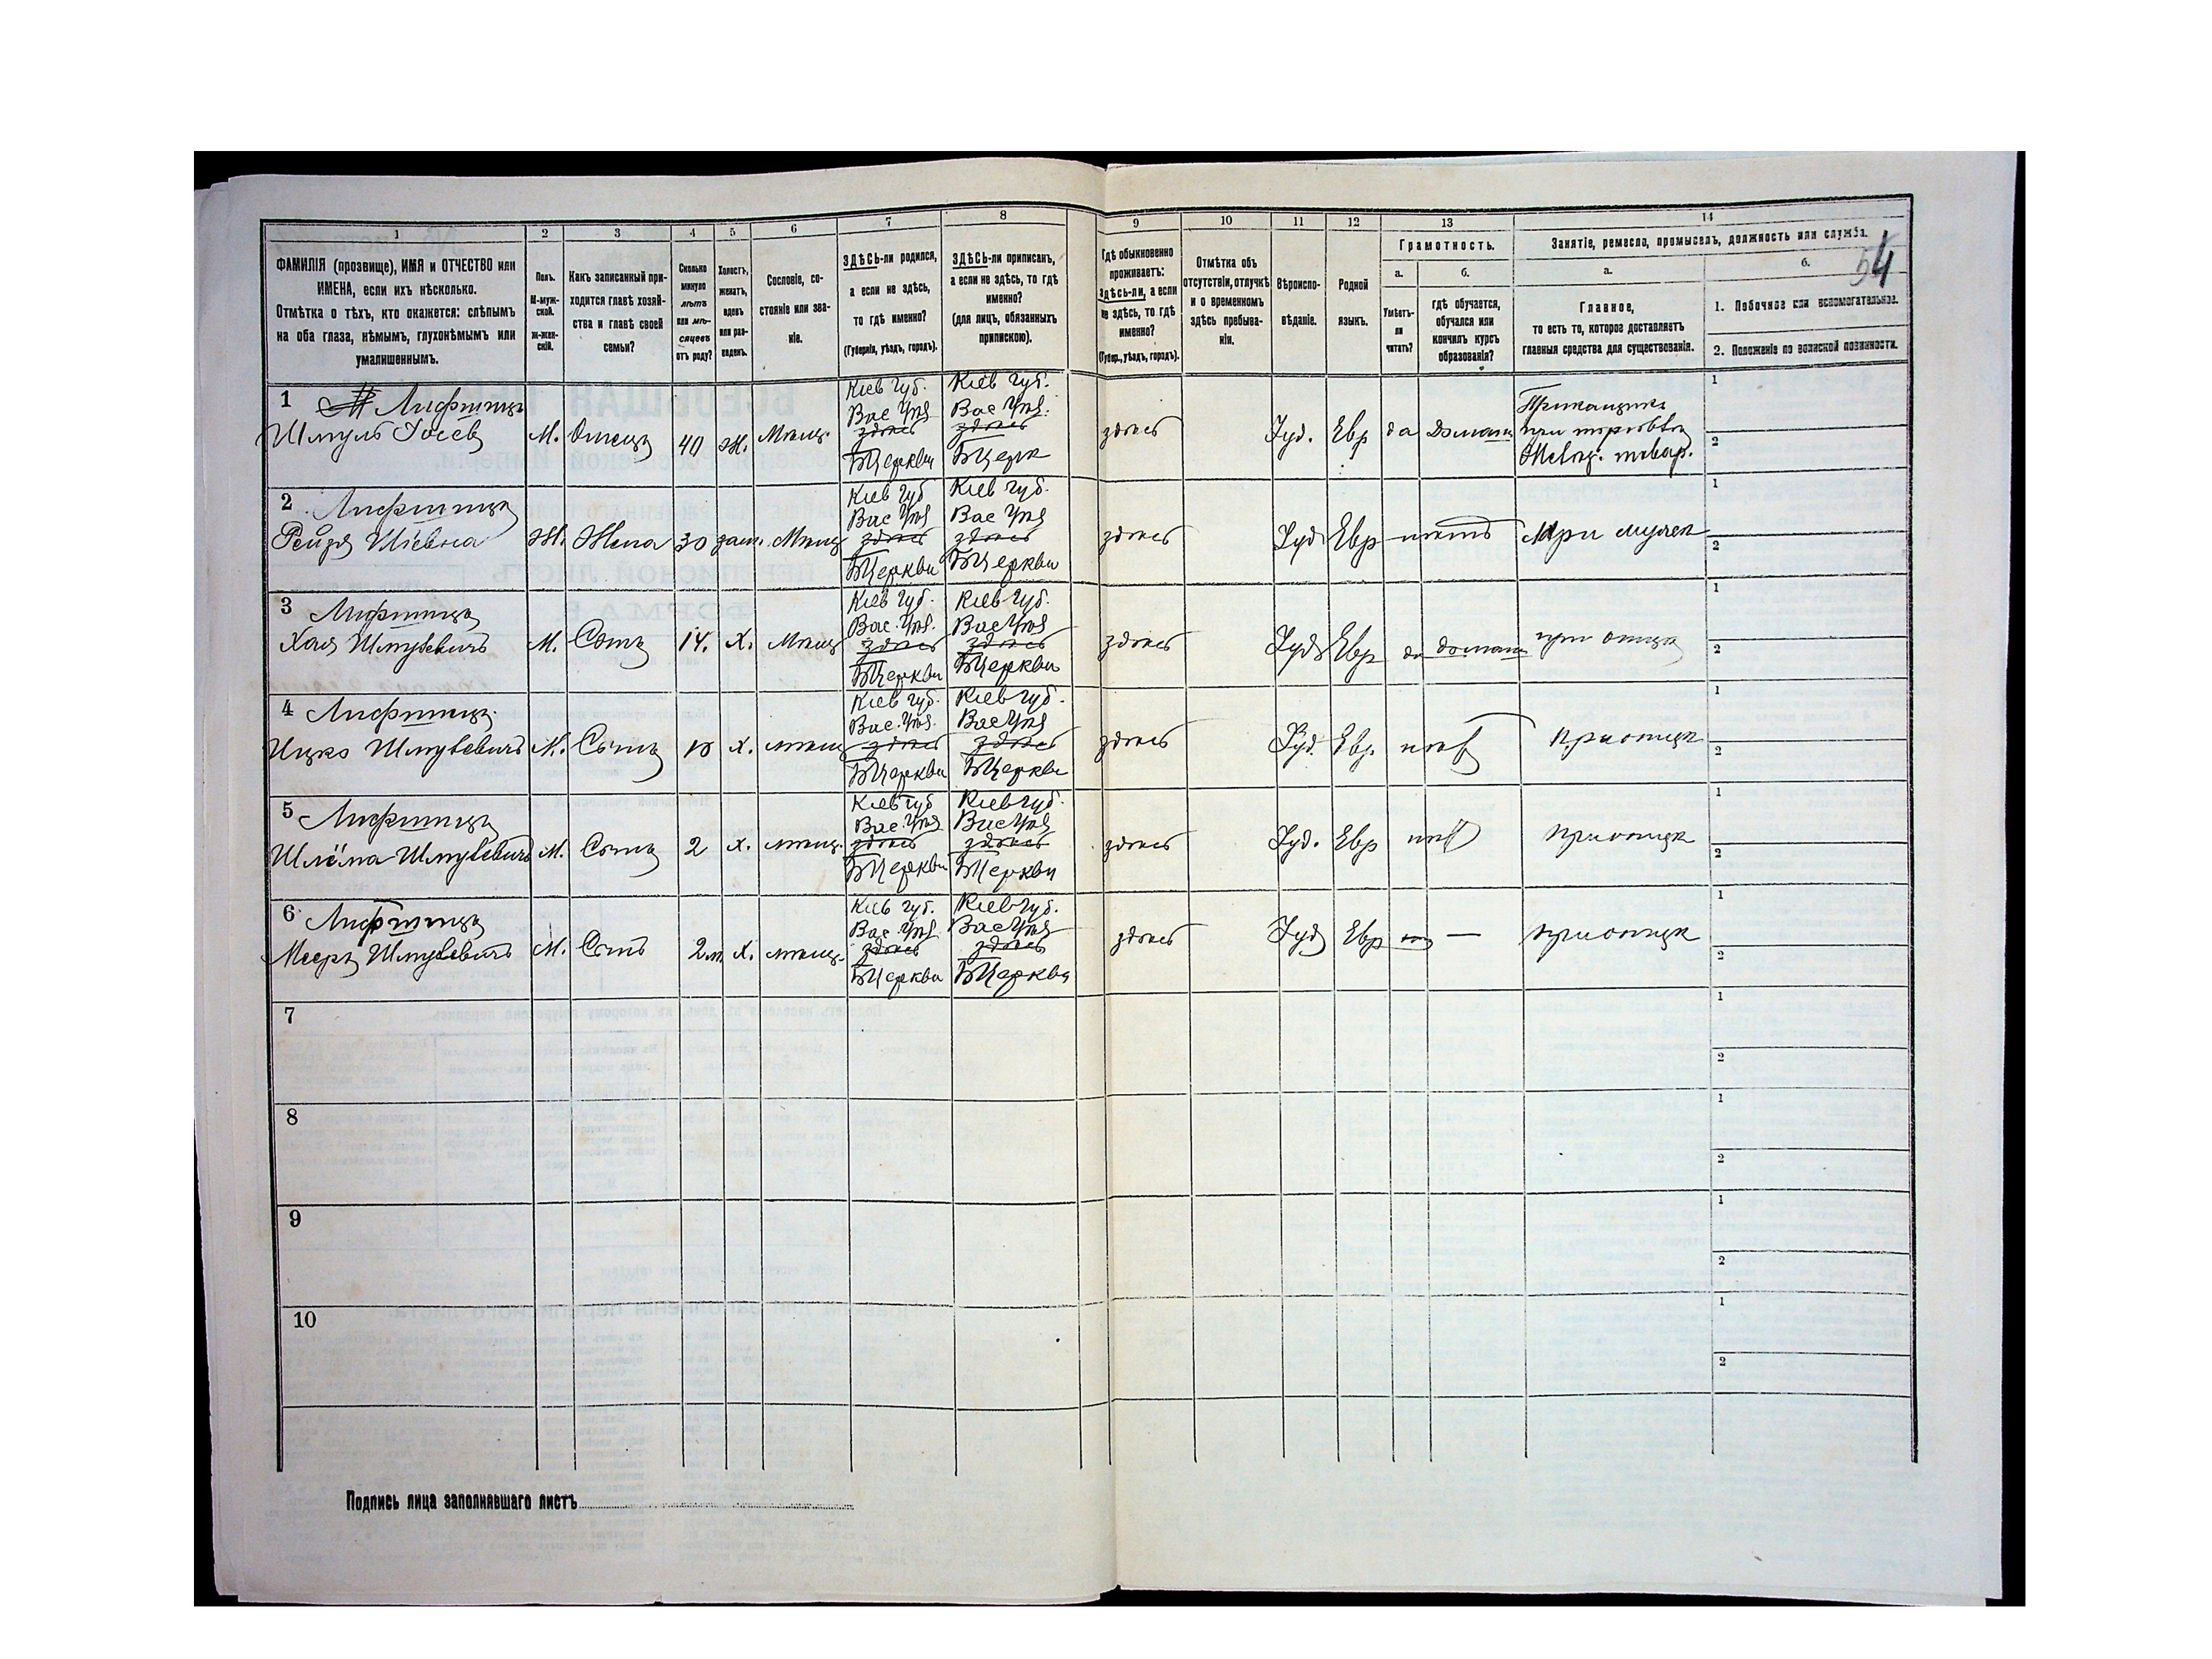 54
1 2 3 4 5 6 7 8 9 10 11 12 13 14
ФАМИЛІЯ (прозвище), ИМЯ и ОТЧЕСТВО или
ИМЕНА, если ихъ нѣсколько.
Отмѣтка о тѣхъ, кто окажется: слѣпымъ
на оба глаза, нѣмымъ, глухонѣмымъ или
умалишеннымъ.
Полъ.
М-муж-
ской.
Ж-жен-
скій.
Какъ записанный при-
ходится главѣ хозяй-
ства и главѣ своей
семьи?
Сколько
минуло
лѣтъ
или мѣ-
сяцевъ
отъ роду?
Холостъ,
женатъ,
вдовъ
или раз-
веденъ.
Сословіе, со-
стояніе или зва-
ніе.
ЗДѢСЬ-ли родился,
а если не здѣсь,
то гдѣ именно?
(Губернія, уѣздъ, городъ).
ЗДѢСЬ-ли приписанъ,
а если не здѣсь, то гдѣ
именно?
(для лицъ, обязанныхъ
припискою).
Гдѣ обыкновенно
проживаетъ:
здѣсь-ли, а если
не здѣсь, то гдѣ
именно?
(Губер., уѣздъ, городъ).
Отмѣтка объ
отсутствіи, отлучкѣ
и о временномъ
здѣсь пребыва-
ніи.
Вѣроиспо-
вѣданіе.
Родной
языкъ.
Грамотность.
а.
Умѣетъ-
ли
читать?
б.
гдѣ обучается,
обучался или
кончилъ курсъ
образованія?
Занятіе, ремесло, промыселъ, должность или служба.
а.
Главное,
то есть то, которое доставляетъ
главныя средства для существованія.
б.
1. Побочное или вспомогательное.
2. Положеніе по воинской повинности.
1 Лифшицъ
Шмуль Іосев
М. Отецъ 40 Ж. Мѣщ.
Кіев губ.
Вас Уѣз
здѣсь
БЦеркви
Кіев губ.
Вас Уѣз.
здѣсь
БЦерк
здѣсь
Іуд. Евр да Домаш
Прикащикъ
при торговлѣ
1
2
2 Лифшицъ
Рейзя Шіевна
Ж. Жена 30 зам. Мѣщ
Кіев губ
Вас Уѣз
здѣсь
БЦеркви
Кіев губ.
Вас Уѣз
здѣсь
БЦеркви
здѣсь
Іуд Евр нѣтъ При мужѣ
1
2
3 Лифшицъ
Шмулевичъ
М. Сынъ 14. Х. Мѣщ
Кіев губ.
Вас. Уѣз.
здѣсь
БЦеркви
Кіев губ.
Вас Уѣз
здѣсь
БЦеркви
здѣсь
Іуд Евр да домаш при отцѣ
1
2
4 Лифшицъ
Ицко Шмулевичъ
М. Сынъ 10 Х. мѣщ
Кіев губ.
Вас. Уѣз.
здѣсь
БЦеркви
Кіев губ.
Вас Уѣз
здѣсь
БЦеркви
здѣсь
Іуд. Евр. нѣт при отцѣ
1
2
5 Лифшицъ
Шлёма Шмулевичъ
М. Сынъ 2 х. мѣщ.
Кіев губ
Вас. Уѣз
здѣсь
БЦеркви
Кіев губ.
Вас Уѣз
здѣсь
БЦеркви
здѣсь
Іуд. Евр нѣт при отцѣ
1
2
6 Лифшицъ
Мееръ Шмулевичъ
М. Сынъ 2 м. Х. мѣщ.
Кіев губ.
Вас Уѣз
здѣсь
БЦеркви
Кіев губ.
Вас Уѣз
здѣсь
БЦеркви
здѣсь
Іуд Евр — при отцѣ
1
2
7
1
2
8
1
2
9
1
2
10
1
2
Подпись лица заполнявшаго листъ